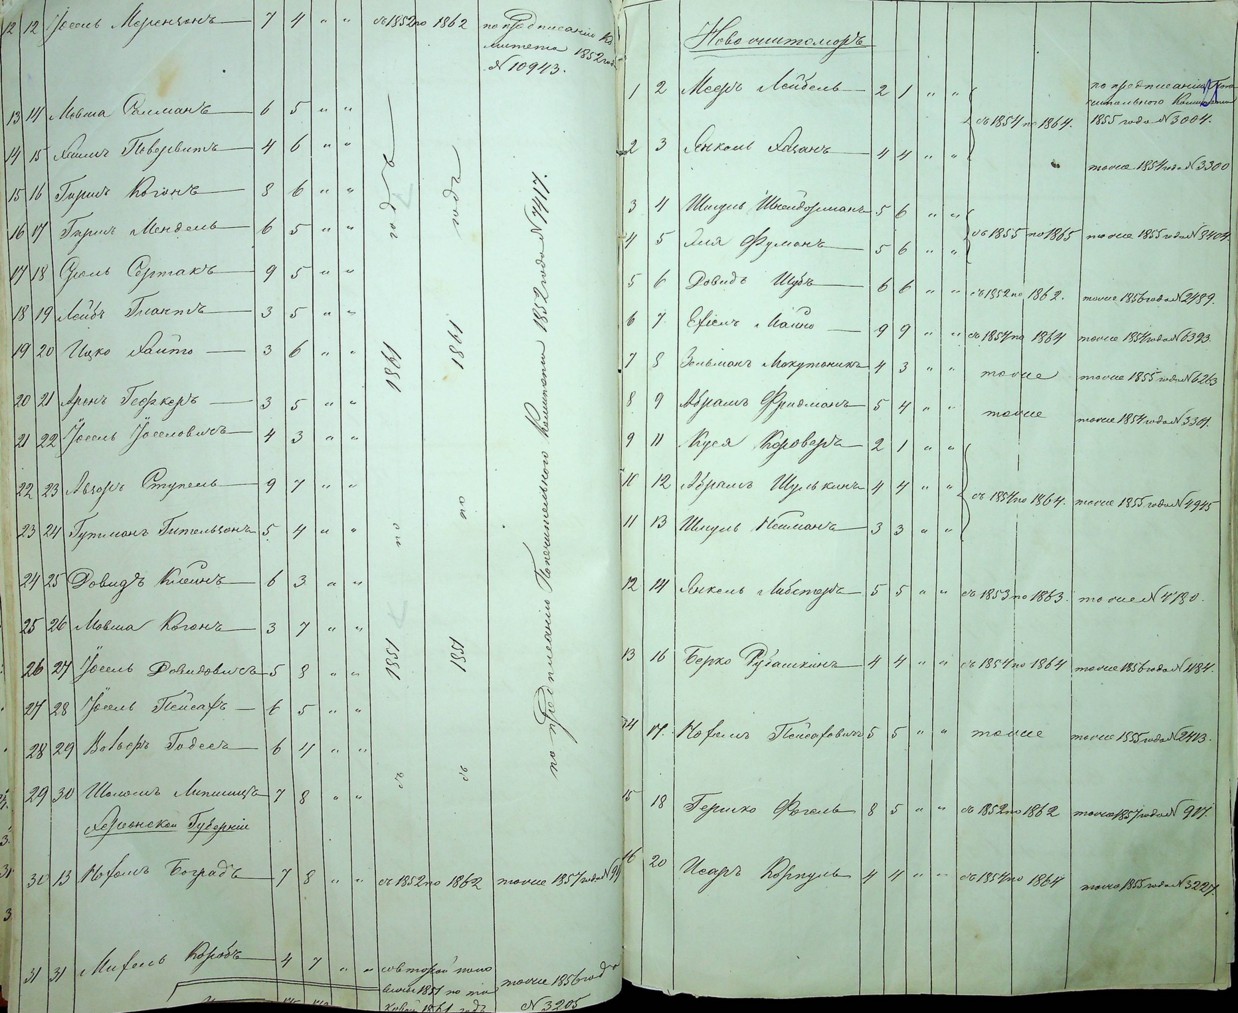 12 12 Іосель Моренцонъ 7 4 " " съ 1852 по 1862 по предписанію Ко
митета 1852 года
№ 10943.
13 14 Мовша 6 5 " "
14 15 Хаимъ 4 6 " "
15 16 Гиршъ Коганъ 8 6 " "
16 17 Гиршъ Мендель 6 5 " "
17 18 Сроль 9 5 " "
18 19 Лейбъ 3 5 " "
19 20 Ицко Хаито 3 6 " "
20 21 Аренъ 3 5 " "
21 22 Іосель Іоселовичъ 4 3 " "
22 23 Ступель 9 7 " "
23 24 5 4 " "
24 25 Довидъ Клеинъ 6 3 " "
25 26 Мовша Коганъ 3 7 " "
26 27 Іосель Довидовичъ 5 8 " "
27 28 Іосель Пейсахъ 6 5 " "
28 29 6 4 " "
29 30 Шоломъ Липшицъ 7 8 " "
съ 1851 по 1861 годъ
съ 1851 по 1861 годъ
по предписанію Попечительного Комитета 1852 года № 7417.
Херсонской Губерніи
30 13 Нохомъ Боградъ 7 8 " " съ 1852 по 1862 тоже 1857 года №
31 31 Михель Коробъ 4 7 " " со второй поло
вины 1851 по та
ковой 1861 годъ
тоже 1856 года
№ 3205
Новожитоміръ
1 2 Мееръ Лейбель 2 1 " " съ 1854 по 1864. по предписанію Попе
чительного Комитета
1855 года № 3004.
2 3 Янкель Хазанъ 4 4 " " тоже 1854 года № 3300
3 4 Шмуль Шнейдерманъ 5 6 " " съ 1855 по 1865 тоже 1855 года № 3404
4 5 Лия Фуманъ 5 6 " "
5 6 Довидъ Шубъ 6 6 " " съ 1852 по 1862. тоже 1856 года № 2489.
6 7 9 9 " " съ 1854 по 1864 тоже 1854 года № 6393
7 8 Зельманъ 4 3 " " тоже тоже 1855 года № 6263
8 9 Абрамъ Фридманъ 5 4 " " тоже тоже 1854 года № 3301.
9 11 Куся 2 1 " "
10 12 Абрамъ Шулькинъ 4 4 " " съ 1854 по 1864. тоже 1855 года № 4945
11 13 Шмуль Нейманъ 3 3 " "
12 14 Янкель Либстеръ 5 5 " " съ 1853 по 1863. тоже № 4780.
13 16 Берко Рубашкинъ 4 4 " " съ 1854 по 1864 тоже 1856 года № 1184.
14 17. Нохимъ Пейсаховичъ 5 5 " " тоже тоже 1855 года № 2413.
15 18 Гершко Фогель 8 5 " " съ 1852 по 1862 тоже 1857 года № 917.
16 20 Исаръ Корпуль 4 4 " " съ 1854 по 1864 тоже 1855 года № 3227